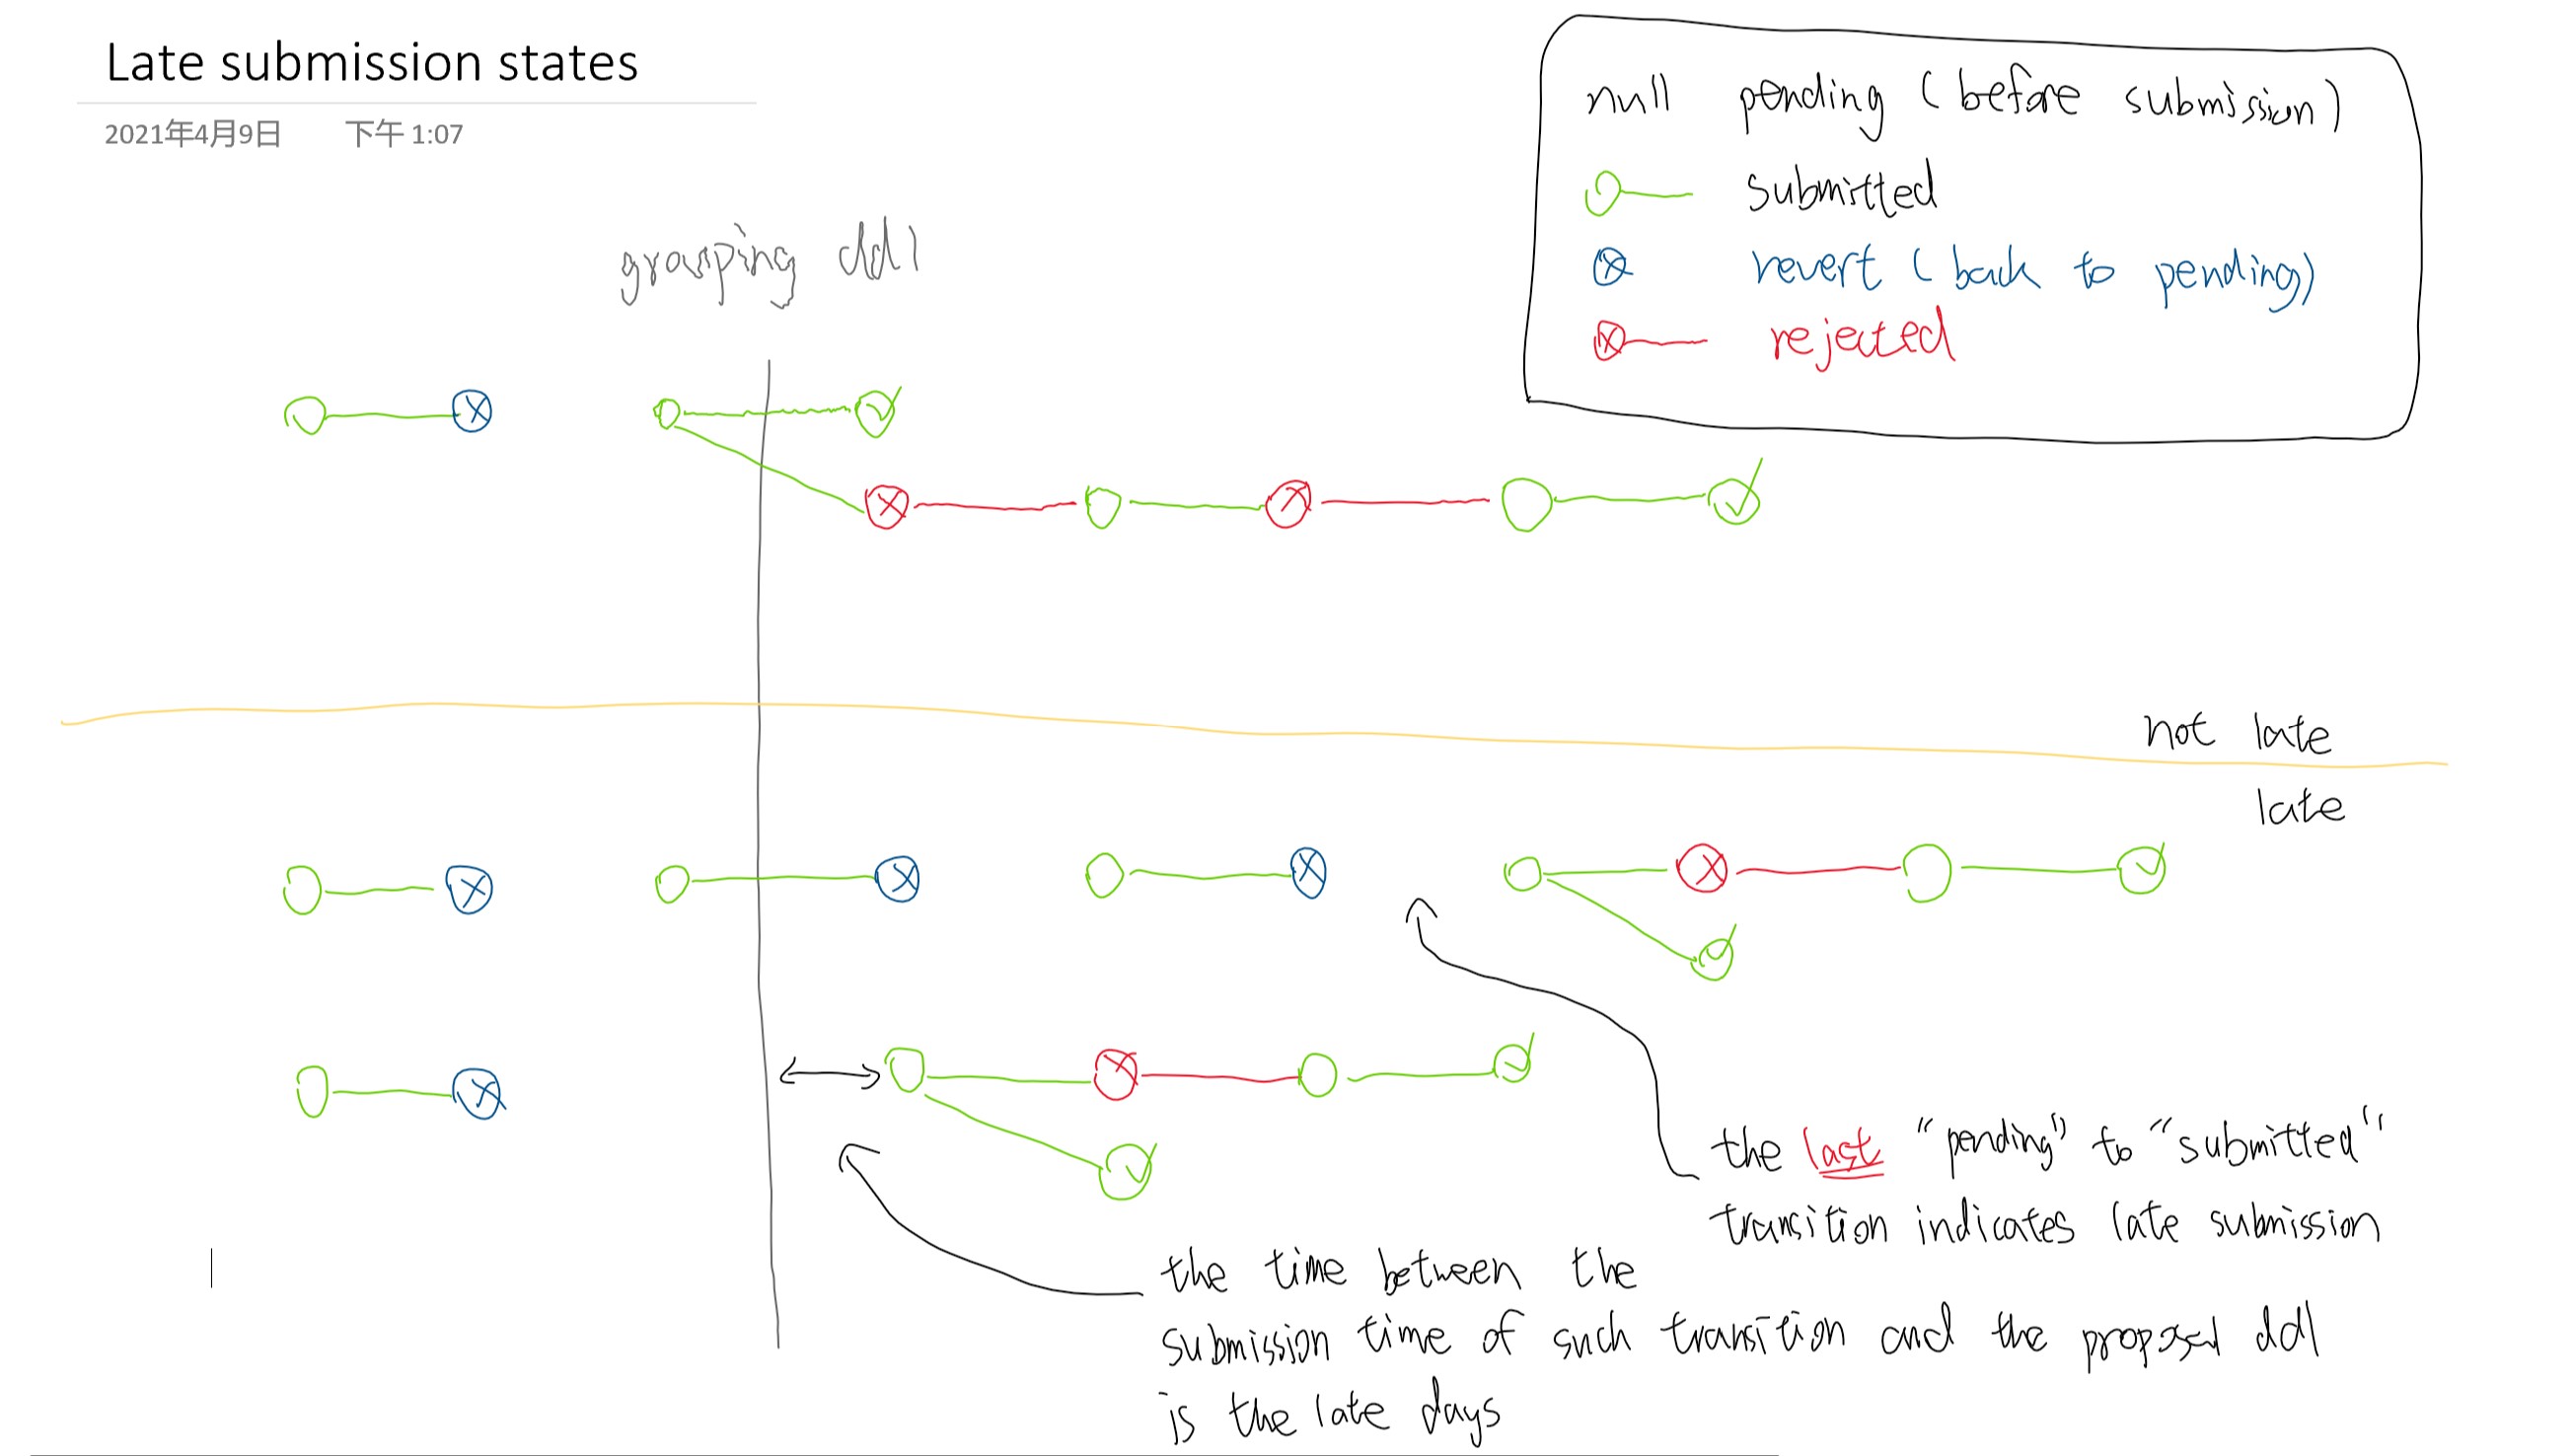 Late submission states
2021年4月9日 下午 1:07
null pending (before submission)
submitted
revert (back to pending)
rejected
grasping ddl
not late
late
the last "pending" to "submitted"
transition indicates late submission
the time between the
submission time of such transition and the proposed ddl
is the late days